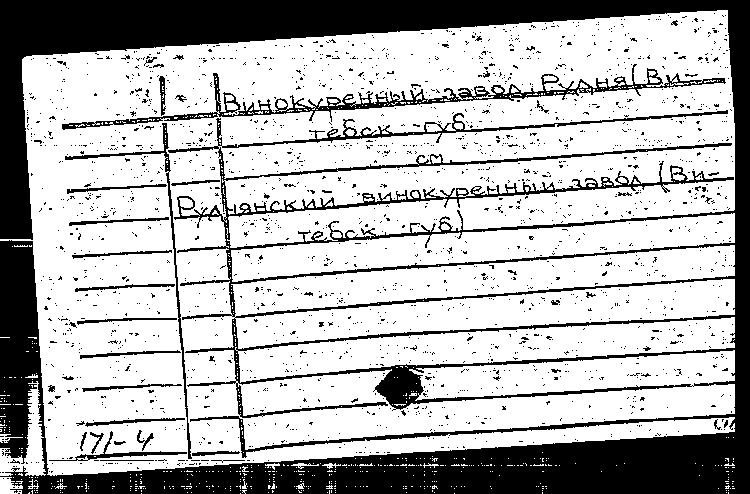 Винокуренный завод, Рудня (Ви-
тебск. губ.
см.
Руднянский винокуренный завод (Ви-
тебск. губ.)
171-4